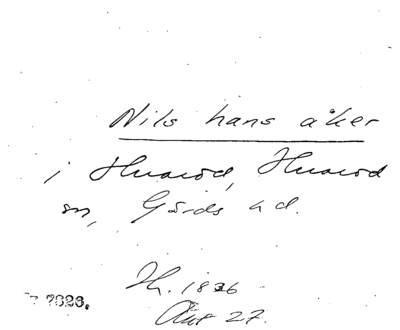 Nils hans åker
i Huaröd, Huaröd
sn, Gärds hd.
1836
27.
7826.